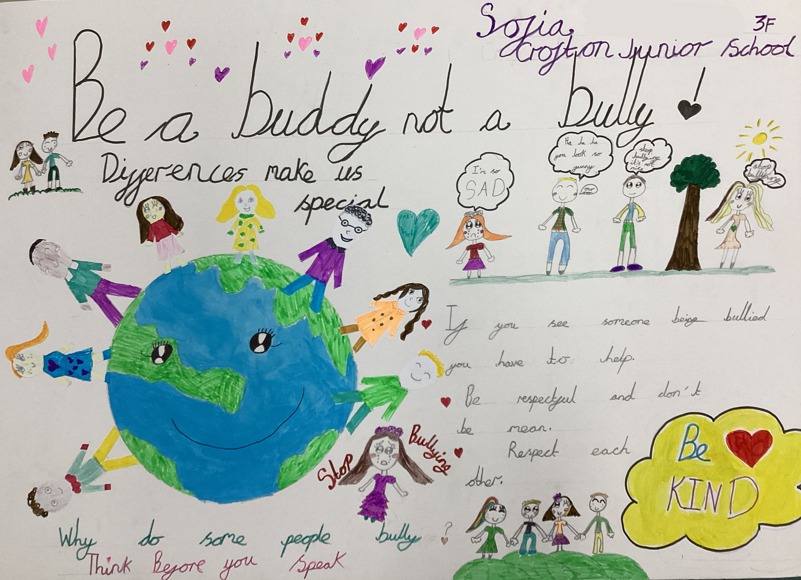 Sofia 3F
Crofton Junior School
Be a buddy not a bully!
Differences make us
special
I'm so
SAD
Ha ha ha
you look so
funny
stop
bullying
it's not
nice
stop
bullying
If you see someone being bullied
you have to help.
Be respectful and don't
be mean.
Respect each
other.
Stop Bullying
Be
KIND
Why do some people bully ?
Think Before you speak